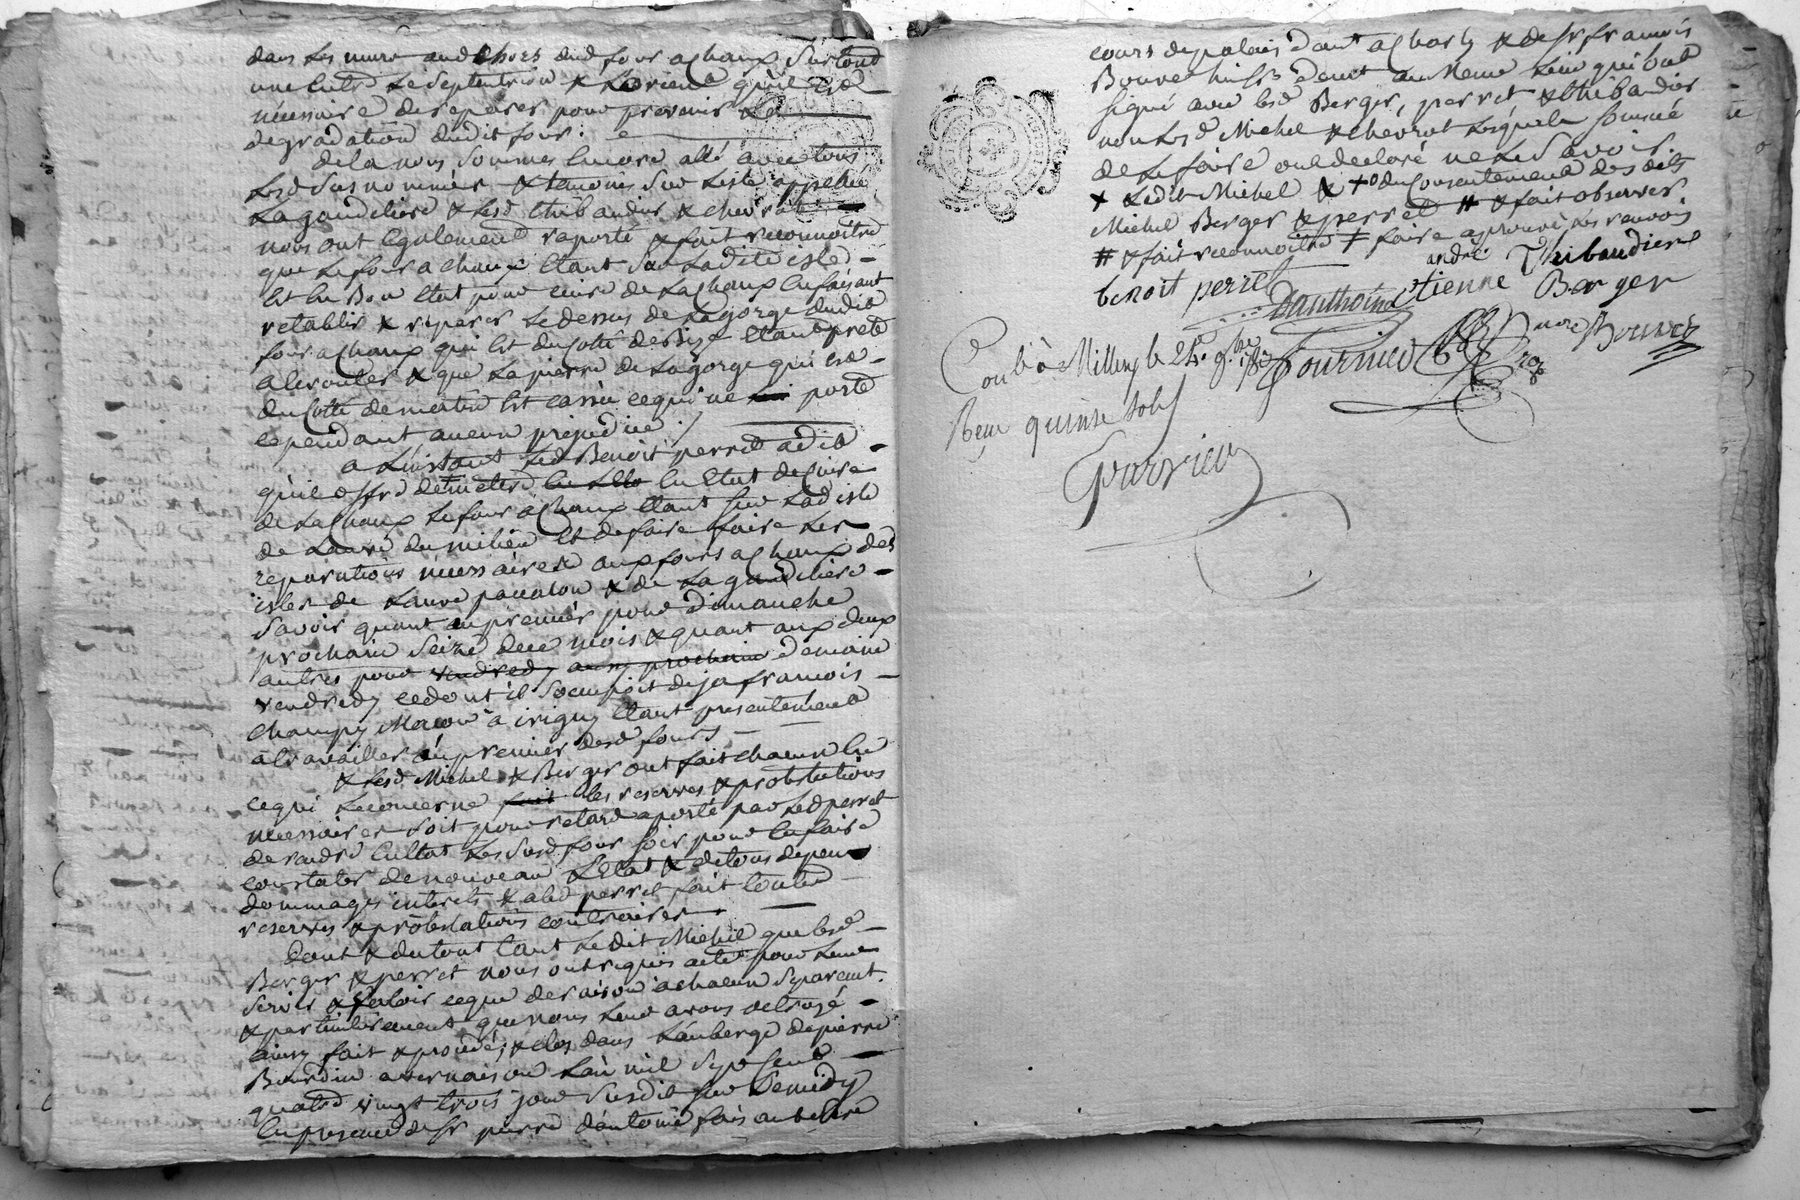 dans les murs au dehors dud four a chaux surtout
une entre le septentrion & l'orient qu'il est
nécessaire de reparer pour prevenir la
degradation dudit four.
de la nous sommes encore allé avec tous
lesd susnommés & temoins sur l'isle appellée
la gandeliere & lesd thibaudier & chevrot
nous ont egalement raporté & fait reconnoitre
que le four a chaux etant sur ladite isle
est en bon etat pour cuire de la chaux en faisant
retablir & reparer le dessus de la gorge dudit
four a chaux qui est du coté de bize etant prete
a lecrouler & que la pierre de la gorge qui est
du coté de matin est cassée ce qui ne porte
cependant aucun prejudice ./.
a l'instant led Benoit perret a dit
qu'il offre de metre en etat de cuire
de la chaux le four a chaux etant sur lad isle
de l'auve du milieu et de faire faire les
reparations necessaires aux fours a chaux des
isles de l'auve paccalon & de la gandeliere
savoir quant au premier pour dimanche
prochain seize de ce mois & quant aux deux
autres pour vendredy prochain demain
vendredy ce dont il s'occupoit deja francois
champy Macon a irigny etant presentement
a travailler au premier desd fours
& lesd Michel & Berger ont fait chacun en
ce qui le concerne fait les reserves & protestations
necessaires soit pour retard aporté par led perret
de rendre en etat les susd four soit pour en faire
constater de nouveau l'etat & de tous depens
dommages interets & a led perret fait toutes
reserves & protestations contraires
dont & du tout tant ledit Michel que lesd
Berger & perret nous ont requis acte pour leur
servir & valoir ce que de raison a chacun separemt.
& particulierement que nous leur avons octroyé
ainsy fait & procedé, & clos dans l'auberge de pierre
Bourdin a vernaison l'an mil sept cent
quatre vingt trois jour susdit sur le midy
en presence de sr pierre d'antoine fais
cours de palais dmt a Charly & de sr francois
Bouvet dmt au meme lieu qui ont
signé avec lesd Berger, perret & thibaudier
non lesd Michel & chevrot lesquels sommé
de le faire ont declaré ne le savoir
+ ledit Michel & +o du consentement des dits
Michel Berger & perret # & fait observer
# & fait reconnoitre ‡ faire aprouvé les renvois
benoit perret andré Thibaudier
Danthoine Etienne Berger
Fournier Bouvet
Conlé a Millery le 24e. 9bre 1783
Reçu quinze sols